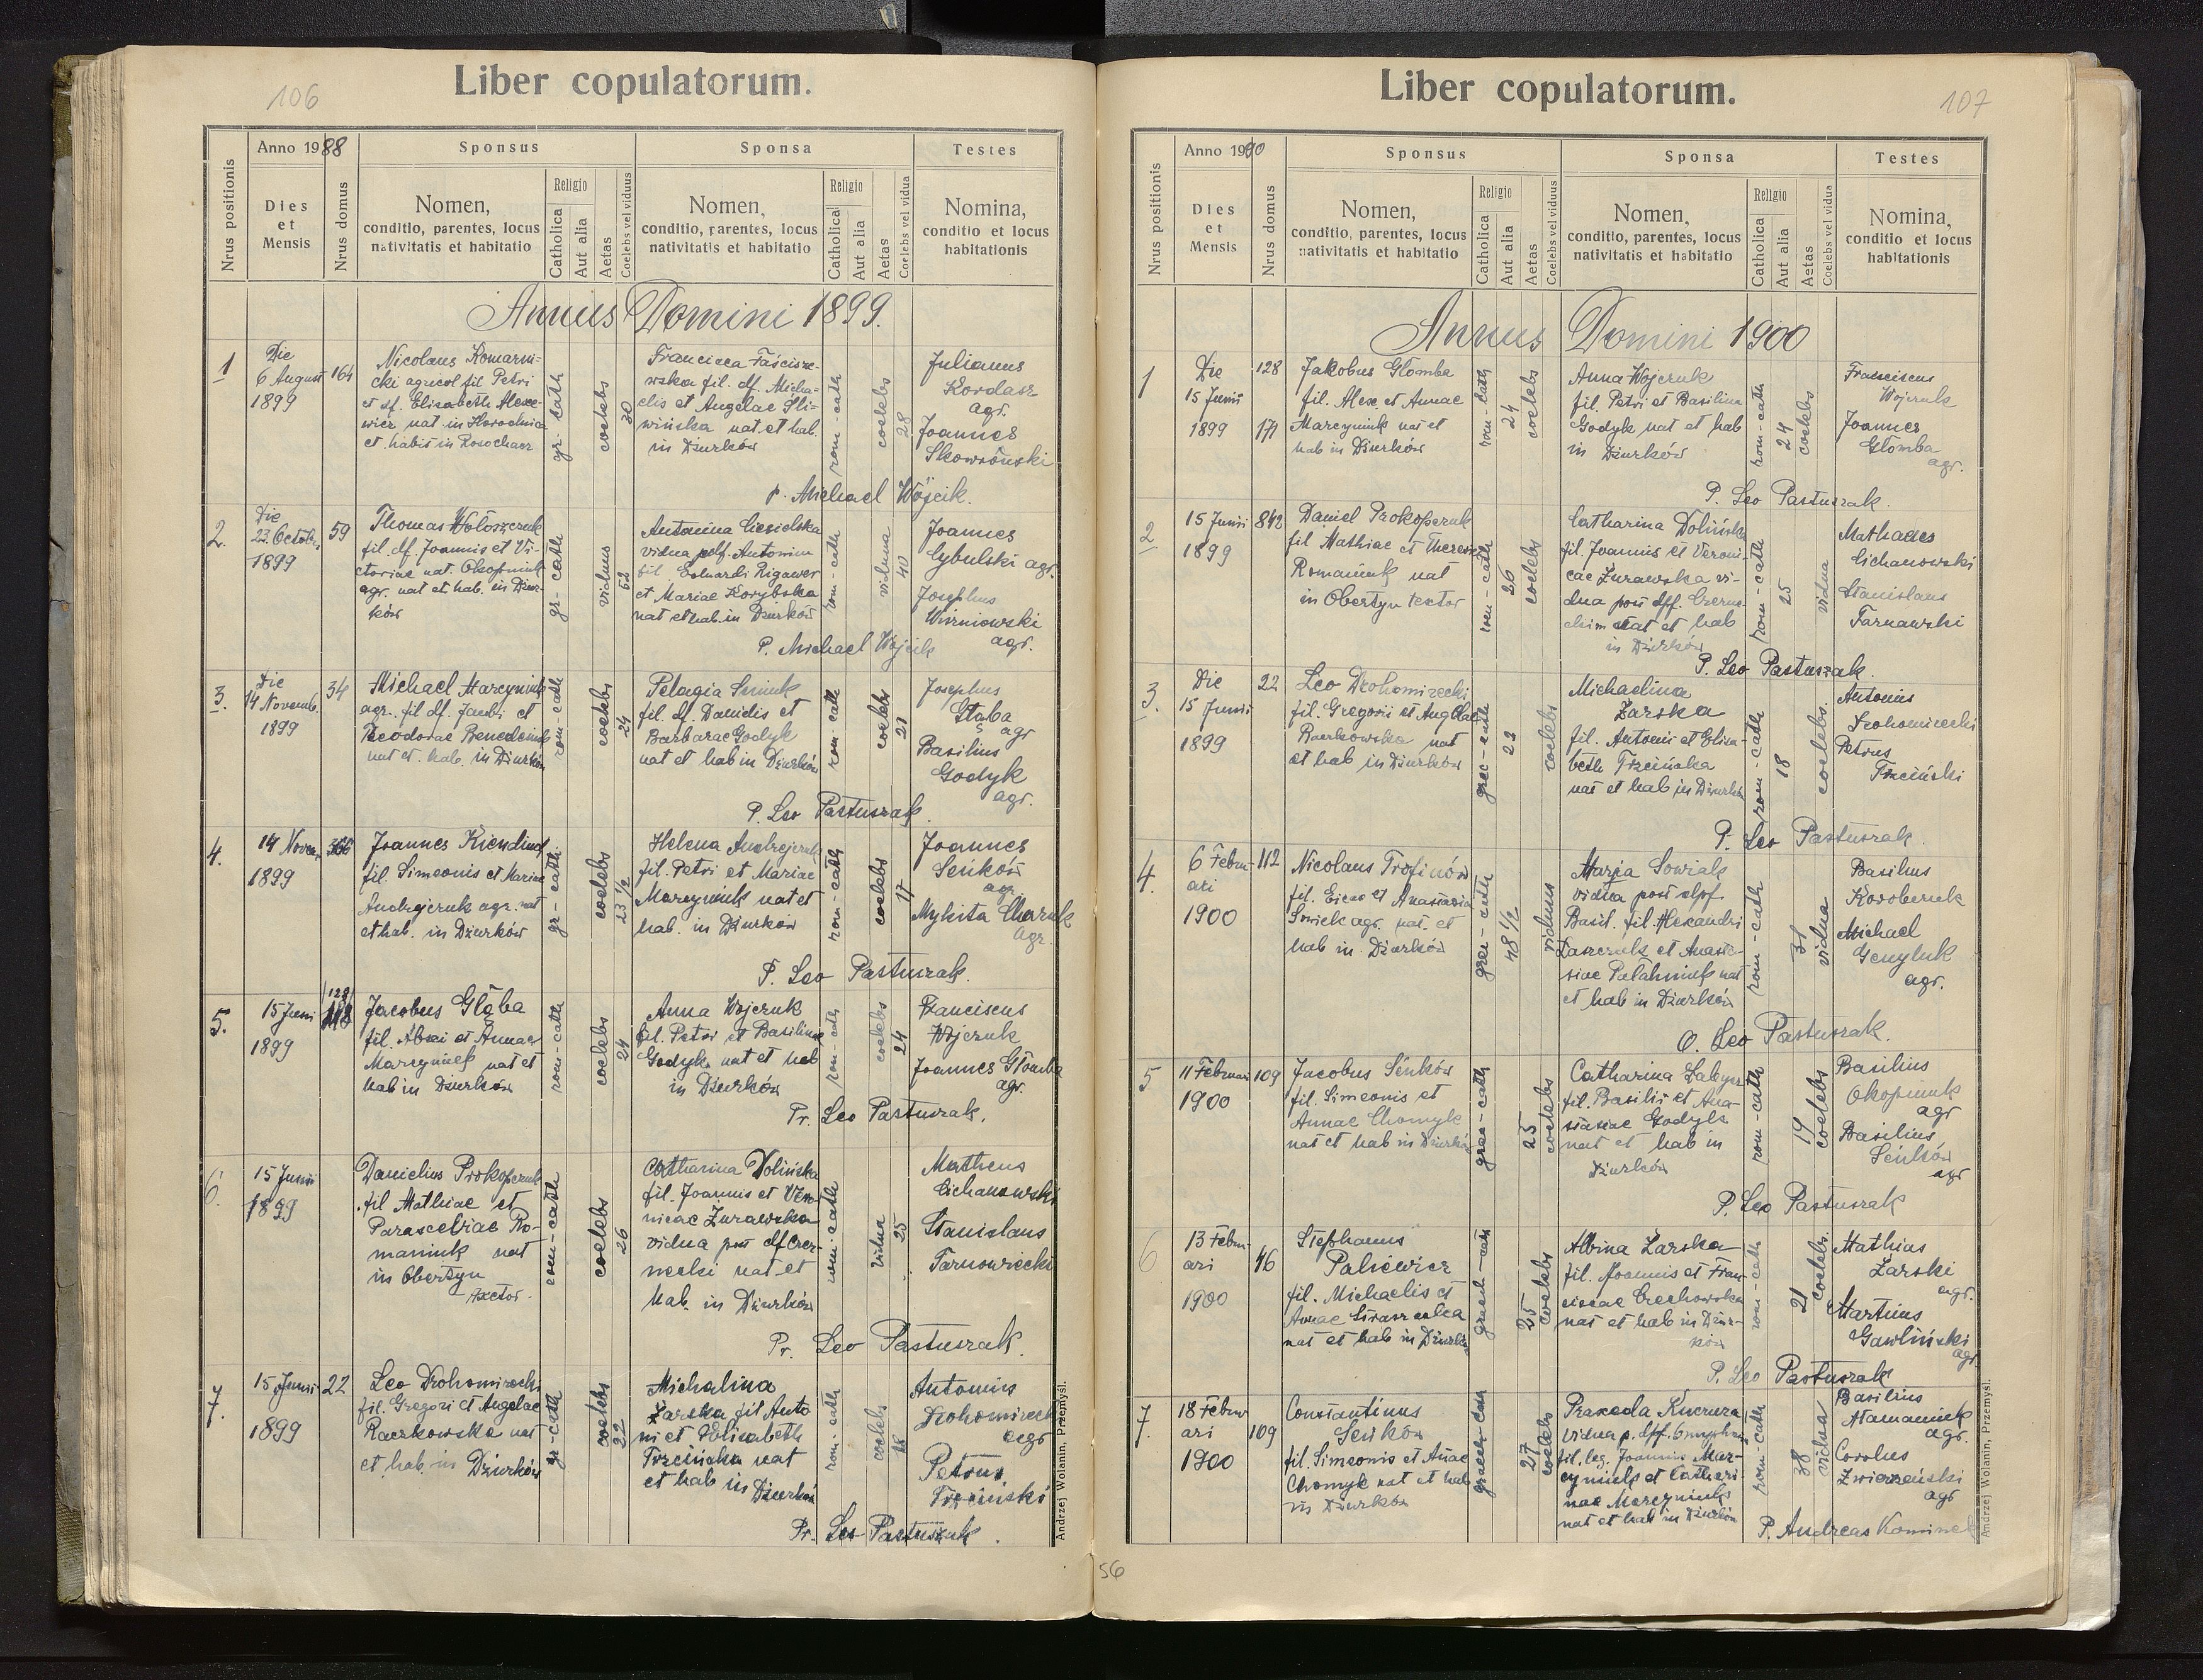 106
Liber copulatorum.
Nrus positionis
Anno 1988
Dies
et
Mensis
Nrus domus
Sponsus
Nomen,
conditio, parentes, locus
nativitatis et habitatio
Religio
Catholica
Aut alia
Aetas
Coelebs vel viduus
Sponsa
Nomen,
conditio, parentes, locus
nativitatis et habitatio
Religio
Catholica
Aut alia
Aetas
Coelebs vel vidua
Testes
Nomina,
conditio et locus
habitationis
Annus Domini 1899.
1
Die
6 August
1899
164
Nicolaus Komarni=
cki agricol fil Petri
et df. Elisabeth
nat in Horodnica
et habit in Rosochacz
gr-cath
coelebs
30
wska fil. df. Micha=
elis et Angelae Sli=
wińska nat. et hab.
in Dżurków
rom-cath
coelebs
28
Julianus
Kordasz
agr.
Joannes
Skowroński
P. Michael Wójcik.
2.
Die
22. Octob.
1899
59
Thomas Wołoszczuk
fil. df. Joannis et Vi-
ctoriae nat. Okopniuk
agr. nat et hab. in Dżur-
ków
gr-cath
viduus
62
Antonina Ciesielska
vidua
et Mariae Korybska
nat et hab. in Dżurków
rom-cath
vidua
40
Joannes
Cybulski agr.
Josephus
Wiśniowski
agr.
P. Michael Wójcik
3.
Die
14 Novemb.
1899
34
Michael Marcyniuk
agr. fil df. Jacobi et
Theodorae
nat et. hab. in Dżurków
rom-cath
coelebs
24
Pelagia
fil. df. Danielis et
Barbarae Godyk
nat et hab in Dżurków
rom-cath
coelebs
21
Josephus
Głąba
agr
Basilius
Godyk
agr.
P. Leo Pastuszak.
4.
14 Novem.
1899
Joannes
fil. Simeonis et Mariae
Andrejczuk agr. nat
et hab. in Dżurków
gr-cath.
coelebs
23 1/2
Helena Andrejczuk
fil. Petri et Mariae
Marcyniuk nat et
hab. in Dżurków
rom-cath
coelebs
17
Joannes
Seńków
agr.
Mykita
agr.
P. Leo Pastuszak.
5.
15 Juni
1899
128
Jacobus Głąba
fil. et Annae
Marcyniuk nat et
hab in Dżurków
rom-cath
coelebs
24
Anna Wojczuk
fil. Petri et Basilinae
Godyk nat et hab
in Dżurków
rom-cath
coelebs
24
Franciscus
Wojczuk
Joannes Głomba
agr.
Pr. Leo Pastuszak.
6.
15 Junii
1899
Danielius Prokopczuk
fil Mathiae et
Parascebiae Ro-
maniuk nat
in Obertyn
textor.
rom-cath
coelebs
26
Catharina Wolińska
fil. Joannis et Vero-
nicae Żurawska
vidua post df Czer-
necki nat et
hab. in Dżurków
rom-cath
vidua
25
Matheus
Cichanowski
Stanislaus
Tarnowiecki
Pr. Leo Pastuszak.
7.
15 Junii
1899
22
Leo Drohomirecki
fil. Gregori et Angelae
Raczkowska nat
et hab. in Dżurków
gr-cath
coelebs
22
Michalina
Żarska fil Anto
ni et Elisabeth
Trzcińska nat
et hab in Dżurków
rom-cath
coelebs
18
Antonius
Drohomirecki
agr
Petrus
Trzciński
Pr. Leo Pastuszak.
Andrzej Wolanin, Przemyśl.
107
Liber copulatorum.
Nrus positionis
Anno 1900
Dies
et
Mensis
Nrus domus
Sponsus
Nomen,
conditio, parentes, locus
nativitatis et habitatio
Religio
Catholica
Aut alia
Aetas
Coelebs vel viduus
Sponsa
Nomen,
conditio, parentes, locus
nativitatis et habitatio
Religio
Catholica
Aut alia
Aetas
Coelebs vel vidua
Testes
Nomina,
conditio et locus
habitationis
Annus Domini 1900
1
Die
15 Junii
1899
128
171
Jakobus Głomba
fil. Alex. et Annae
Marcyniuk nat et
hab in Dżurków
rom-cath
24
coelebs
Anna Wojczuk
fil. Petri et Basilina
Godyk nat et hab
in Dżurków
rom-cath
24
coelebs
Franciscus
Wojczuk
Joannes
Głomba
agr.
P. Leo Pastuszak.
2
15 Junii
1899
842
Daniel Prokopczuk
fil Mathiae et Theresie
Romaniuk nat
in Obertyn textor
rom-cath
26
coelebs
Catharina Dolińska
fil. Joannis et Veroni-
cae Żurawska vi-
dua post dff.
nat et hab
in Dżurków
rom-cath
25
vidua
Mathaeus
Cichanowski
Stanislaus
Tarnawski
P. Leo Pastuszak.
3.
Die
15 Junii
1899
22
Leo Drohomirecki
fil. Gregorii et
Raczkowska nat
et hab in Dżurków
grec-cath
23
coelebs
Michaelina
Żarska
fil. Antoni et Elisa-
beth Trzcińska
nat et hab in Dżurków
rom-cath
18
coelebs.
Antonius
Drohomirecki
Petrus
Trzciński
P. Leo Pastuszak.
4.
6 Febru-
ari
1900
112
Nicolaus Trofinów
fil. et Anastasia
agr. nat. et
hab in Dżurków
grec-cath
48 1/2
viduus
Marja Sowiak
vidua post
Basil. fil. Alexandri
Daszczuk et Anasta-
siae Palahniuk nat
et hab in Dżurków
rom-cath
31
vidua
Basilius
Korobczuk
Michael
agr.
O. Leo Pastuszak.
5
11 Februari
1900
109
Jacobus Seńków
fil. Simeonis et
Annae Chomyk
nat et hab in Dżurków
grec-cath
25
coelebs
Catharina
fil. Basilii et Ana-
stasiae Godyk
nat et hab in
Dżurków
rom-cath
19
coelebs
Basilius
Okopniuk
agr
Basilius
Seńków
agr
P. Leo Pastuszak
6
13 Febru-
ari
1900
46
Stephanus
Paliewicz
fil. Michaelis et
Annae
nat et hab in Dżurków
25
coelebs
Albina Żarska
fil. Joannis et Fran-
ciscae Czechowska
nat et hab in Dżur-
ków
rom-cath
21
coelebs.
Mathias
Żarski
agr.
Martinus
Gawliński
agr.
P. Leo Pastuszak
7.
18 Febru
ari
1900
109
Constantinus
Seńków
fil. Simeonis et Anae
Chomyk nat et hab
in Dżurków
graec-cath
27
coelebs
Praxeda Kuczura
vidua p. dff.
fil. leg. Joannis Mar-
cyniuk et Cathari-
nae Marcyniuk
nat et hab in Dżurków
rom-cath
38
vidua
Basilius
Atamaniuk
agr.
Carolus
agr
P. Andreas Kominek
Andrzej Wolanin, Przemyśl.
56